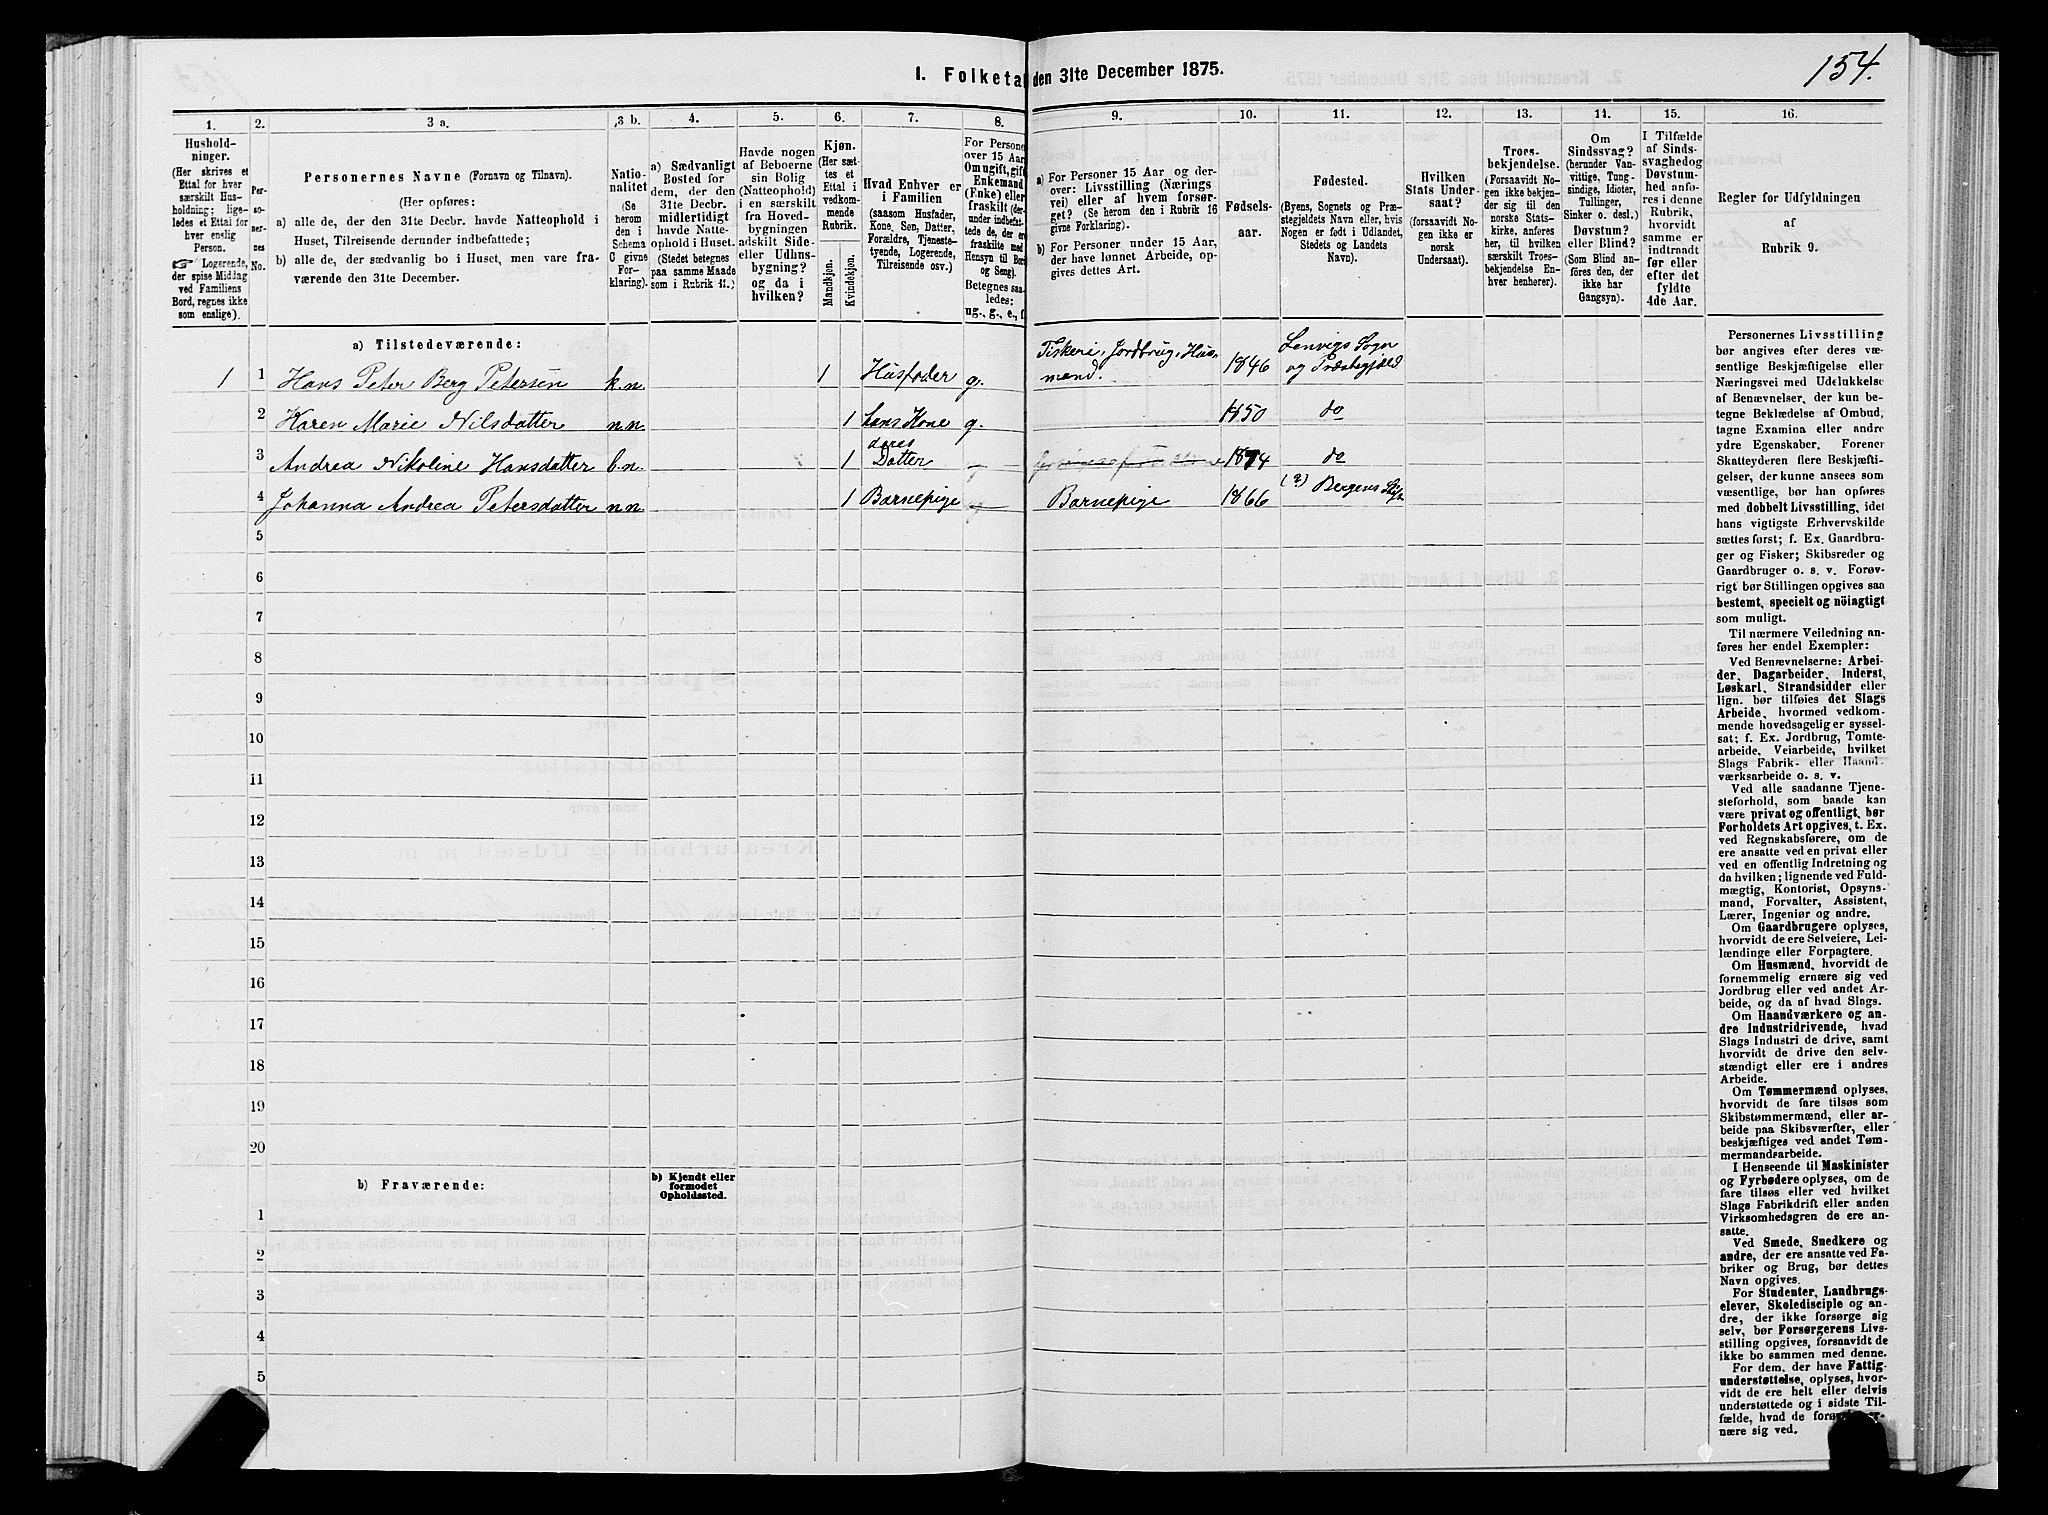 I. Folketal den 31te December 1875.
154.
1.
Husholdninger.
(Her skrives et
Ettal for hver
særskilt Husholdning;
ligeledes et Ettal for
hver enslig
Person.
Logerende,
der spise Middag
ved Familiens
Bord, regnes ikke
som enslige).
2.
Personernes
No.
3 a.
Personernes Navne (Fornavn og Tilnavn).
(Her opføres:
a) alle de, der den 31te Decbr. havde Natteophold i
Huset, Tilreisende derunder indbefattede;
b) alle de, der sædvanlig bo i Huset, men vare fraværende
den 31te December.
3 b.
Nationalitet
(Se
herom
den i
Schema
C givne
Forklaring).
4.
a) Sædvanligt
Bosted for
dem, der den
31te Decbr.
midlertidigt
havde Natteophold
i Huset.
(Stedet betegnes
paa samme Maade
som i Rubrik 11.)
5.
Havde nogen
af Beboerne
sin Bolig
(Natteophold)
i en særskilt
fra Hovedbygningen
adskilt Side-
eller Udhusbygning?
og da i
hvilken?
6.
Kjøn.
(Her sættes
et
Ettal i
vedkommende
Rubrik.
Mandkjøn.
Kvindekjøn.
7.
Hvad Enhver er
i Familien
(saasom Husfader,
Kone, Søn, Datter,
Forældre, Tjenestetyende,
Logerende,
Tilreisende osv.)
8.
For Personer
over 15 Aar:
Om ugift, gift,
Enkemand
(Enke) eller
fraskilt (derunder
indbefattede
de, der ere
fraskilte med
Hensyn til Bord
og Seng).
Betegnes saaledes:
ug., g., e., f.
9.
a) For Personer 15 Aar og derover:
Livsstilling (Næringsvei)
eller af hvem forsørget?
(Se herom de i Rubrik 16
givne Forklaring).
b) For Personer under 15 Aar,
der have lønnet Arbeide, opgives
dettes Art.
10.
Fødselsaar.
11.
Fødested.
(Byens, Sognets og Præstegjeldets
Navn eller, hvis
Nogen er født i Udlandet,
Stedets og Landets
Navn).
12.
Hvilken
Stats Undersaat?
(forsaavidt Nogen
ikke er
norsk
Undersaat).
13.
Troesbekjendelse.
(Forsaavidt Nogen
ikke bekjender
sig til den
norske Statskirke,
anføres
her, til hvilken
særskilt Troesbekjendelse
Enhver
henhører).
14.
Om
Sindssvag?
(herunder Vanvittige,
Tungsindige,
Idioter,
Tullinger,
Sinker o. desl.)
Døvstum?
eller Blind?
(Som Blind anføres
den, der
ikke har
Gangsyn).
15.
I Tilfælde
af Sindssvaghed
og
Døvstumhed
anføres
i denne
Rubrik,
hvorvidt
samme er
indtraadt
før eller
efter det
fyldte
4de Aar.
16.
Regler for Udfyldningen
af
Rubrik 9.
a) Tilstedeværende:
1 1 Hans Peter Berg Petersen k.n. 1 Husfader g. Fiskeri, Jordbrug, Husmand. 1846 Lenvigs Sogn og Præstegjeld
2 Karen Marie Nilsdatter n.n. 1 hans Kone g. 1850 do
3 Andrea Nikoline Hansdatter b.n. 1 deres Datter 1874 do
4 Johanna Andrea Petersdatter n.n. 1 Barnepige Barnepige 1866 (?) Bergens Stift
5
6
7
8
9
10
11
12
13
14
15
16
17
18
19
20
b) Fraværende:
b) Kjendt eller
formodet
Opholdssted.
1
2
3
4
5
Personernes Livsstilling
bør angives efter deres væsentlige
Beskjæftigelse eller
Næringsvei med Udelukkelse
af Benævnelser, der kun betegne
Beklædelse af Ombud,
tagne Examina eller andre
ydre Egenskaber. Forener
Skatteyderen flere Beskjæftigelser,
der kunne ansees som
væsentlige, bør han opføres
med dobbelt Livsstilling, idet
hans vigtigste Erhvervskilde
sættes først; f. Ex. Gaardbruger
og Fisker; Skibsreder og
Gaardbruger o. s. v. Forøvrigt
bør Stillingen opgives saa
bestemt, specielt og nöiagtigt
som muligt.
Til nærmere Veiledning anføres
her endel Exempler:
Ved Benævnelserne: Arbeider,
Dagarbeider, Inderst,
Løskarl, Strandsidder eller
lign. bør tilføies det Slags
Arbeide, hvormed vedkommende
hovedsagelig er sysselsat;
f. Ex. Jordbrug, Tomtearbeide,
Veiarbeide, hvilket
Slags Fabrik- eller Haandværksarbeide
o. s. v.
Ved alle saadanne Tjenesteforhold,
som baade kan
være privat og offentligt, bør
Forholdets Art opgives, t. Ex.
ved Regnskabsførere, om de
ere ansatte ved en privat eller
ved en offentlig Indretning og
da hvilken; lignende ved Fuldmægtig,
Kontorist, Opsynsmand,
Forvalter, Assistent,
Lærer, Ingeniør og andre.
Om Gaardbrugere oplyses,
hvorvidt de ere Selveiere, Leilændinge
eller Forpagtere.
Om Husmænd, hvorvidt de
fornemmelig ernære sig ved
Jordbrug eller ved andet Arbeide,
og da af hvad Slags.
Om Haandværkere og andre
Industridrivende, hvad
Slags Industri de drive, samt
hvorvidt de drive den selvstændigt
eller ere i andres
Arbeide.
Om Tømmermænd oplyses,
hvorvidt de fare tilsøs som
Skibstømmermænd, eller arbeide
paa Skibsværfter, eller
beskjæftiges ved andet Tømmermandsarbeide.
I Henseende til Maskinister
og Fyrbødere oplyses, om de
fare tilsøs eller ved hvilket
Slags Fabrikdrift eller anden
Virksomhedsgren de ere ansatte.
Ved Smede, Snedkere og
andre, der ere ansatte ved Fabriker
og Brug, bør dettes
Navn opgives.
For Studenter, Landbrugselever,
Skoledisciple og andre,
der ikke forsørge sig
selv, bør Forsørgerens Livsstilling
opgives, forsaavidt de
ikke bo sammen med denne.
For dem, der have Fattigunderstøttelse,
oplyses, hvorvidt
de ere helt eller delvis
understøttede og i sidste Tilfælde,
hvad de forøvrigt ernære
sig ved.